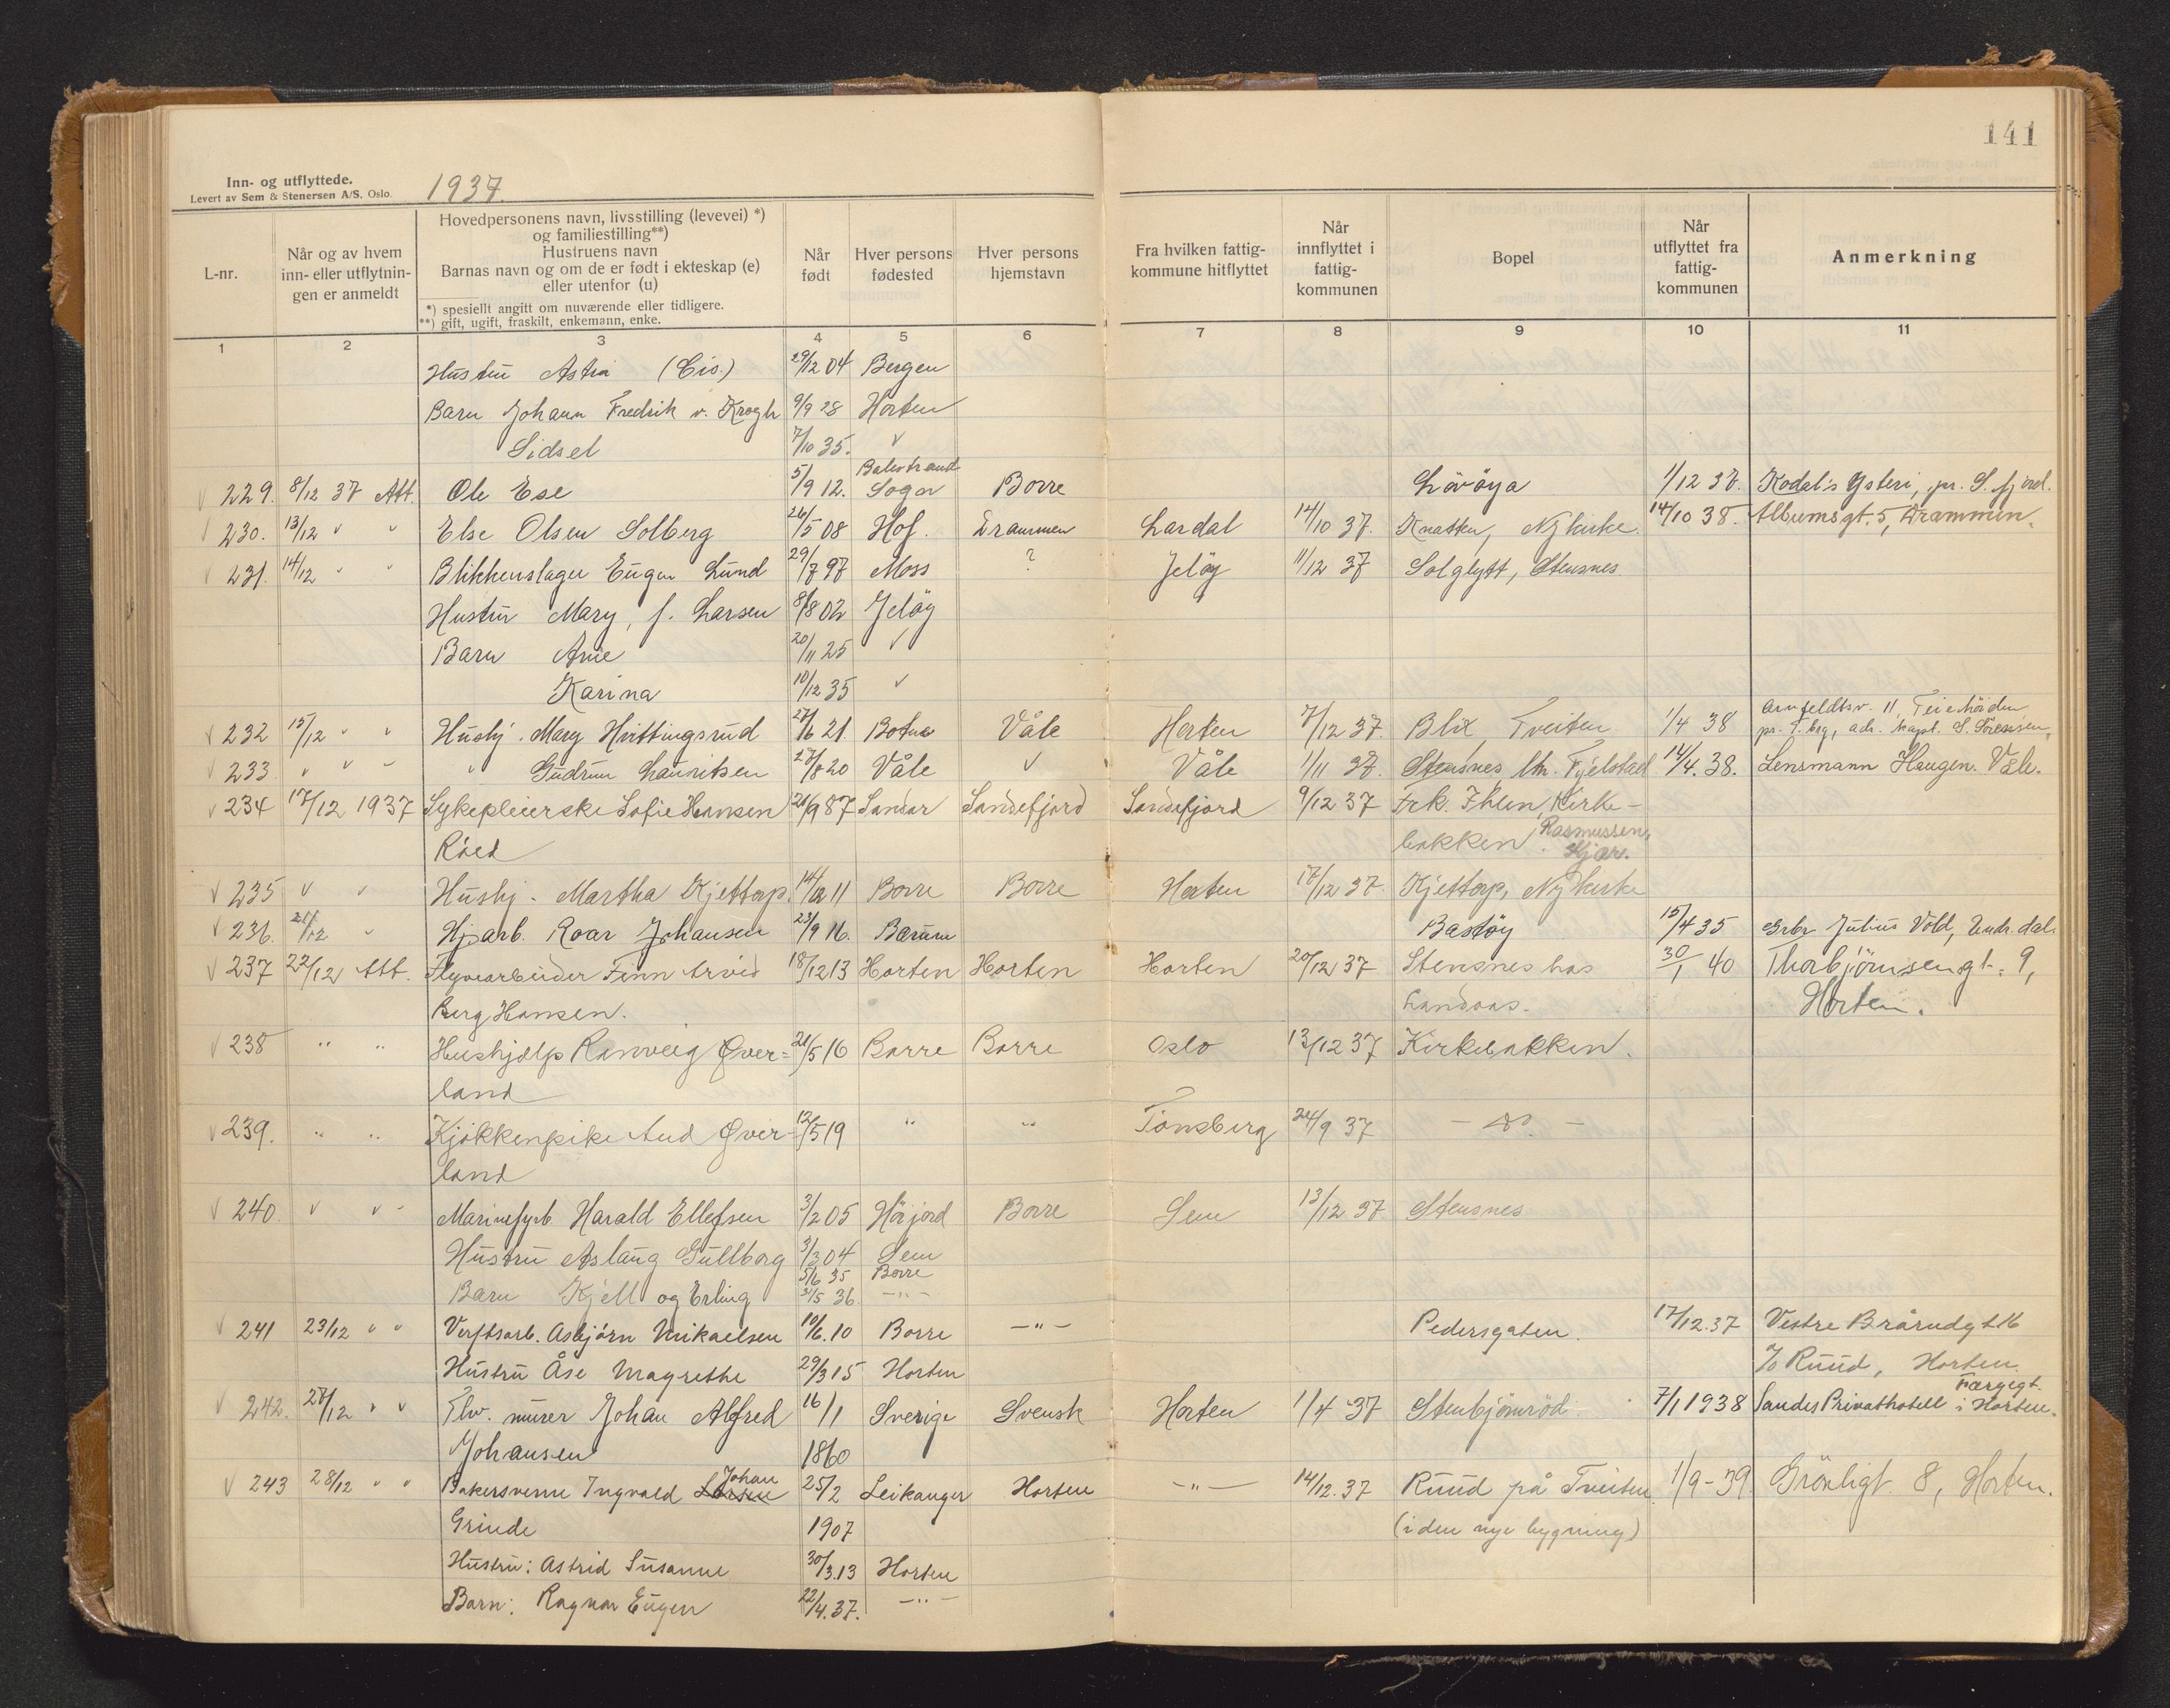 141
Inn- og utflyttede.
Levert av Sem & Stenersen A/S, Oslo.
1937.
L-nr.
Når og av hvem inn- eller utflytnin-gen er anmeldt
Hovedpersonens navn, livsstilling (levevei) *)
og familiestilling**)
Hustruens navn
Barnas navn og om de er født i ekteskap (e)
eller utenfor (u)
*) spesiellt angitt om nuværende eller tidligere.
**) gift, ugift, fraskilt, enkemann, enke.
Når født
Hver persons fødested
Hver persons hjemstavn
Fra hvilken fattig-kommune hitflyttet
Når innflyttet i fattig-kommunen
Bopel
Når utflyttet fra fattig-kommunen
Anmerkning
1 2 3 4 5 6 7 8 9 10 11
Hustru 29/12 04 Bergen
Barn Johann Fredrik v. Krogh 9/9 28 Horten
Sidsel 7/10 35. "
Balestrand
229. 8/12 37 Att. Ole Ese 5/9 12. Sogn Borre Lövöya 1/12 37. Kodal's Ysteri, pr. S. fjord.
230. 13/12 " " Else Olsen Solberg 26/5 08 Hof. Drammen Lardal 14/10 37. Knatten, Nykirke. 14/10 38. Albumsgt. 5, Drammen.
231. 14/12 " " Blikkenslager Eugen Lund 29/7 97 Moss ? Jelöy 11/12 37 Solglytt, Stensnes
Hustru Mary, f. Larsen 8/8 02 Jelöy
Barn Arne 20/11 25 "
Karina 10/12 35 "
Teiehöiden
232 15/12 " " Hushj. Mary Hvittingsrud 27/6 21. Botne Våle Horten 7/12 37. Blix Tveiten 1/4 38 pr. T.brg, adr. kapt. S. Sörensen,
233. " " " " Gudrun Lauritsen 27/8 20 Våle " Våle 1/11 37. Stensnes Fjelstad 14/4. 38. Lensmann Haugen. Våle.
234 17/12 1937 Sykepleierske Sofie Hansen 21/9 87 Sandar Sandefjord Sandefjord 9/12 37 Frk. Ihlen, Kirke-
Röed bakken. Rasmussen,
235 " " Hushj. Martha Kjettorp. 14/12 11 Borre Borre Horten 17/12 37. Kjettorp, Nykirke
236. 21/12 " Hjparb. Roar Johansen 23/9 16. Bærum Bastöy 15/4 35 Grbr Julius Vold, Undr.dal.
237 22/12 Att. Flyvearbeider Finn Arvid 18/12 13 Horten Horten Horten 20/12 37 Stensnes hos 30/1 40 Thorbjörnsensgt. 9,
Berg Hansen. Landaas. Horten.
238 " " Hushjælp Ranveig Øver= 21/5 16 Borre Borre Oslo 13/12 37 Kirkebakken.
land
239. " " Kjökkenpike Aud Øver- 12/5 19 " " Tönsberg 24/9 37 - do. -
land
240. " " Marinefyrb. Harald Ellefsen 3/2 05 Borre Sem 13/12 37 Stensnes
Hustru Aslaug Gullborg 3/3 04 Sem
5/6 35 Borre
Barn Kjell og Erling 31/5 36. -"-
241 23/12 " " Verftsarb. Asbjörn Mikaelsen 10/6. 10 Borre -"- Pedersgaten. 17/12.37 Vestre Brårudgt 16
Hustru Åse Magrethe 29/3 15 Horten c/o Ruud, Horten.
Færgegt.
242. 27/12 " " Flv. murer Johan Alfred 16/1 Sverige Svensk Horten 1/4 37 Stenbjörnröd 7/1 1938 Sandes Privathotell i Horten.
Johansen 1860
Johan
243 28/12 " " Bakersvenn Ingvald Larsen 25/2 Leikanger Horten -"- 14/12.37 Ruud på Tveiten. 1/9-39. Grönligt. 8, Horten.
Grinde 1907 (i den nye bygning)
Hustru: Astrid Susanne 30/3.13 Horten
Barn: Ragnar Eugen 22/4.37. -"-